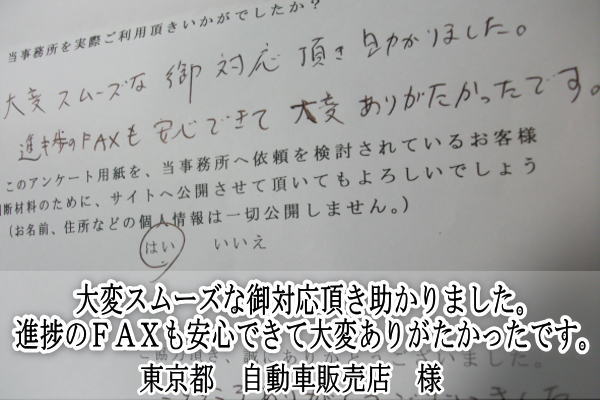 当事務所を実際ご利用頂きいかがでしたか？
大変スムーズな御対応頂き助かりました。
進捗のFAXも安心できて大変ありがたかったです。
このアンケート用紙を、当事務所へ依頼を検討されているお客様
判断材料のために、サイトへ公開させて頂いてもよろしいでしょう
（お名前、住所などの個人情報は一切公開しません。）
はい　いいえ
大変スムーズな御対応頂き助かりました。
進捗のＦＡＸも安心できて大変ありがたかったです。
東京都　自動車販売店　様